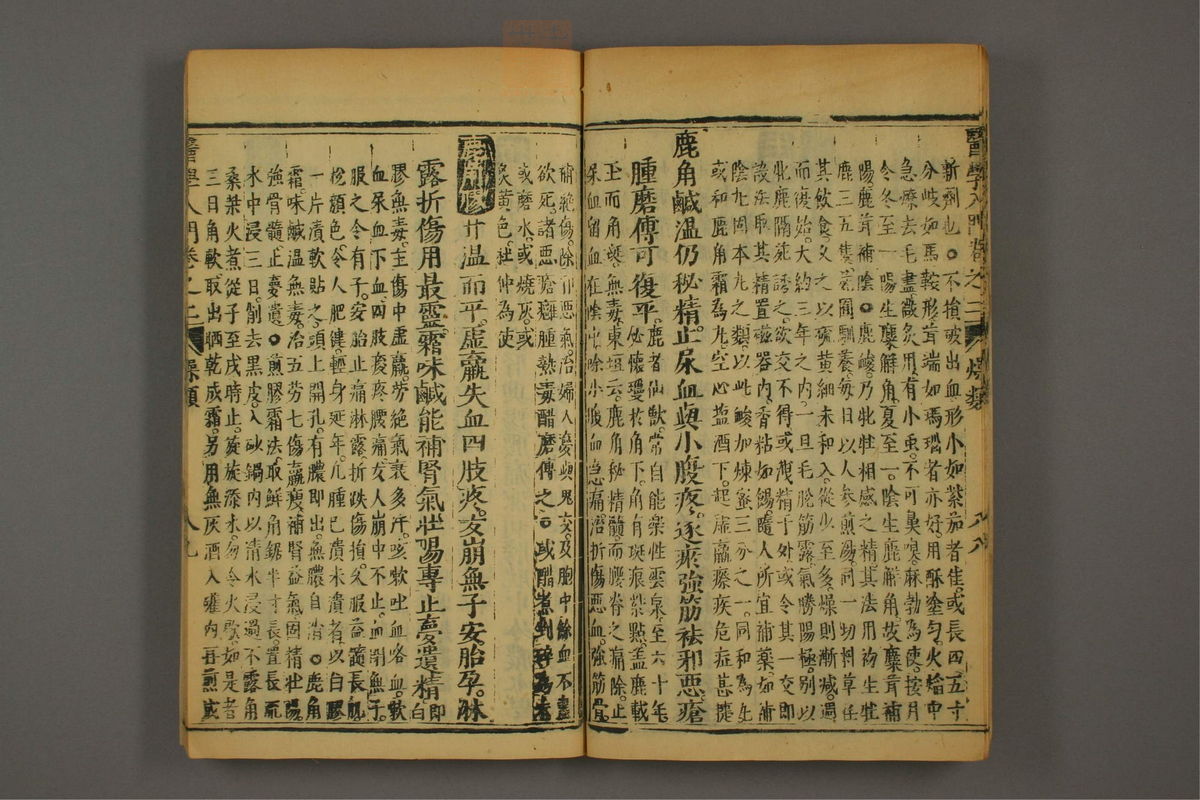 醫學入門卷之二 燥類 八八
新剂也。○不損破出血形小如紫茄者佳。或長四五寸
分岐如馬鞍形茸端如瑪瑙者亦好。用酥塗勻火焰中
急療去毛盡。微灸用。有小虫。不可鼻嗅。麻勃為使。按月
令冬至一陽生麋解角。夏至一陰生鹿解角。故麋茸補
陽。鹿茸補陰。○鹿峻乃牝牡相感之精。其法用初生牡
鹿三五隻。苑囿馴養每日以人參煎湯。同一切料草任
其飲食。久之以硫黄細末和入。從少至多。燥則漸減。週
而復始。大約三年之內。一旦毛脫筋露氣勝陽極。別以
牝鹿隔苑誘之。欲交不得。或洩精于外。或令其一交。即
設法取其精置磁器內。香粘如餳。隨人所宜補藥如補
陰丸固本丸之類。以此峻加煉蜜三分之一。同和為丸
或和鹿角霜為丸。空心盐酒下。起虛羸瘵疾危症甚捷
鹿角鹹溫仍秘精。止尿血與小腹疼。逐瘀強筋祛邪惡。瘡
腫磨傅可復平。
鹿者仙獸。常自能樂性雲泉。至六十年
必懷璚於角下。角有斑痕紫點。盖鹿載
玉而角斑。無毒。東垣云。鹿角秘精髓而腰脊之痛除。止
尿血留血在陰中除小腹血急痛治折傷惡血。強筋骨
補絕傷。除邪惡氣。治婦人夢與鬼交。及胞中餘血不盡
欲死。諸惡瘡癰腫熱毒醋磨傅之。○或醋煮剉碎為末
或磨水或燒灰。或
炙黄色。杜仲為使
鹿角膠 甘溫而平。虛羸失血四肢疼。女崩無子安胎孕。淋
露折傷用最靈。霜味鹹能補腎氣壯陽專止夢遺精 即白
膠無毒。主傷中虛羸。勞絕氣衰多汗。咳嗽吐血咯血。軟
血尿血下血。四肢痠疼腰痛。女人崩中不止。血閉無子。
服之令有子。安胎止痛。淋露折跌傷損。久服益髓長肌
悅顏色。令人肥健。輕身延年。凡腫已潰未潰者。以白膠
一片漬軟貼之。頭上開孔。有膿即出。無膿自消。○鹿角
霜。味鹹溫無毒。治五勞七傷羸瘦。補腎益氣。固精壯陽
強骨髓。止夢遺。○煎膠霜法。取鮮角鋸半寸長。置長流
水中浸三日。削去黑皮。入砂鍋內以清水浸過不露角
桑柴火煮從子至戌時止。旋旋添水。勿令火歇。如是者
三日角軟取出晒乾成霜。另用無灰酒入罐內再煎成
醫學入門卷之二 燥類 八九